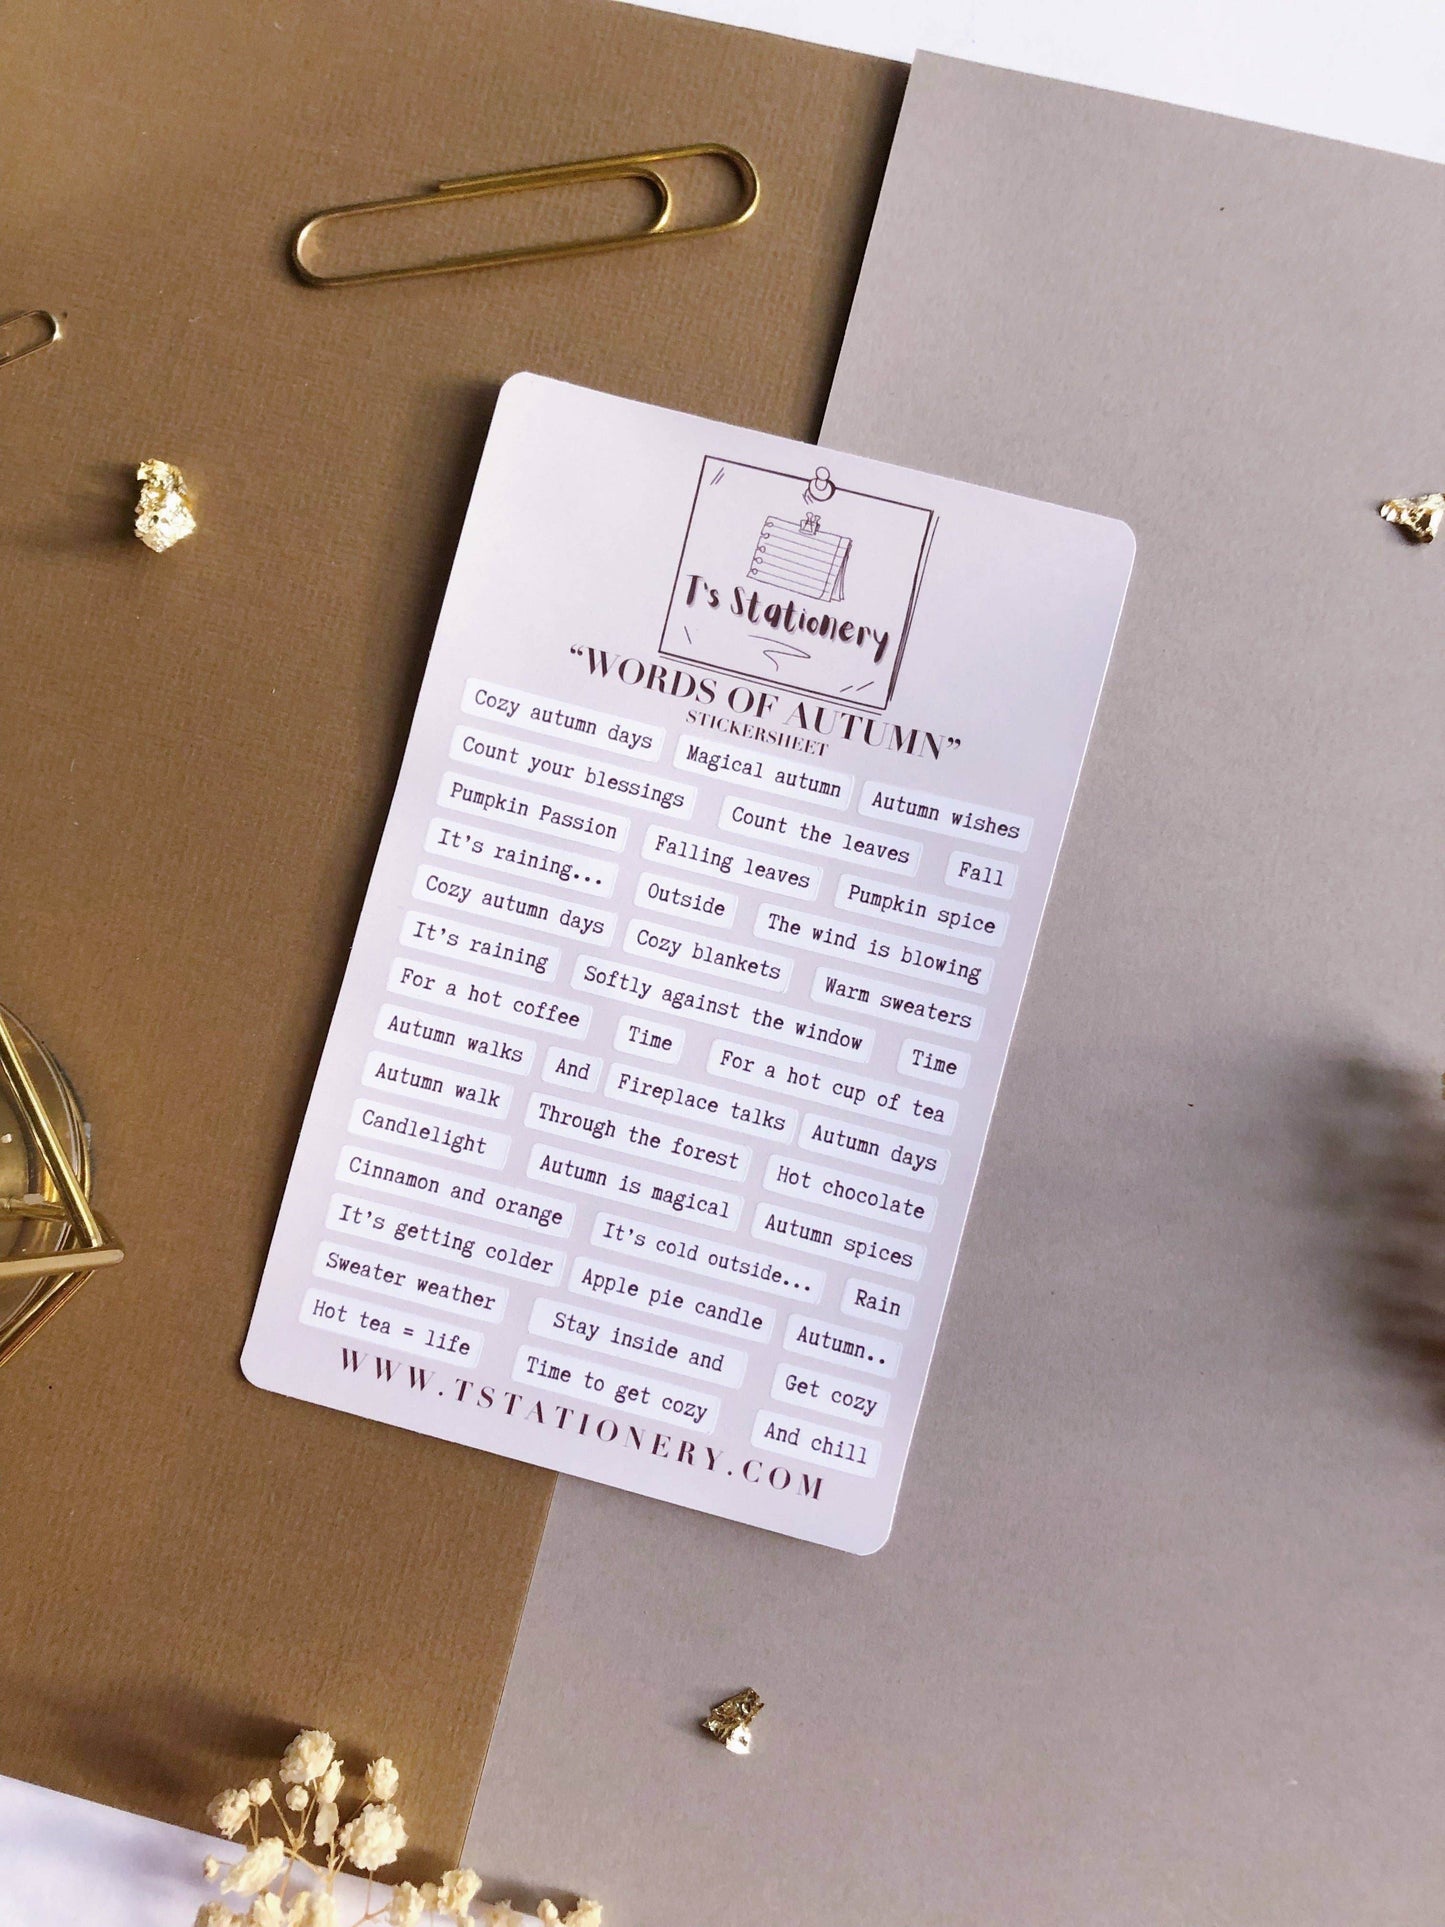 T's Stationery
“WORDS OF AUTUMN”
STICKERSHEET
Cozy autumn days
Magical autumn
Autumn wishes
Count your blessings
Count the leaves
Fall
Pumpkin Passion
Falling leaves
Pumpkin spice
It's raining...
Outside
The wind is blowing
Cozy autumn days
Cozy blankets
Warm sweaters
It's raining
Softly against the window
Time
For a hot coffee
Time
For a hot cup of tea
Autumn walks
And
Fireplace talks
Autumn days
Autumn walk
Through the forest
Hot chocolate
Candlelight
Autumn is magical
Autumn spices
Cinnamon and orange
It's cold outside...
Rain
It's getting colder
Apple pie candle
Autumn..
Sweater weather
Stay inside and
Get cozy
Hot tea = life
Time to get cozy
And chill
WWW.TSTATIONERY.COM